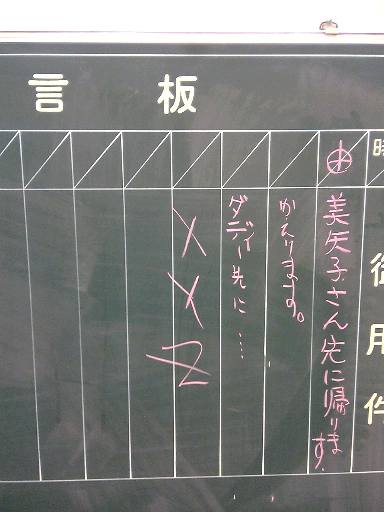 言板
時
御用件
美矢子さん先に帰ります。
かえります。
ダディー先に…
XYZ